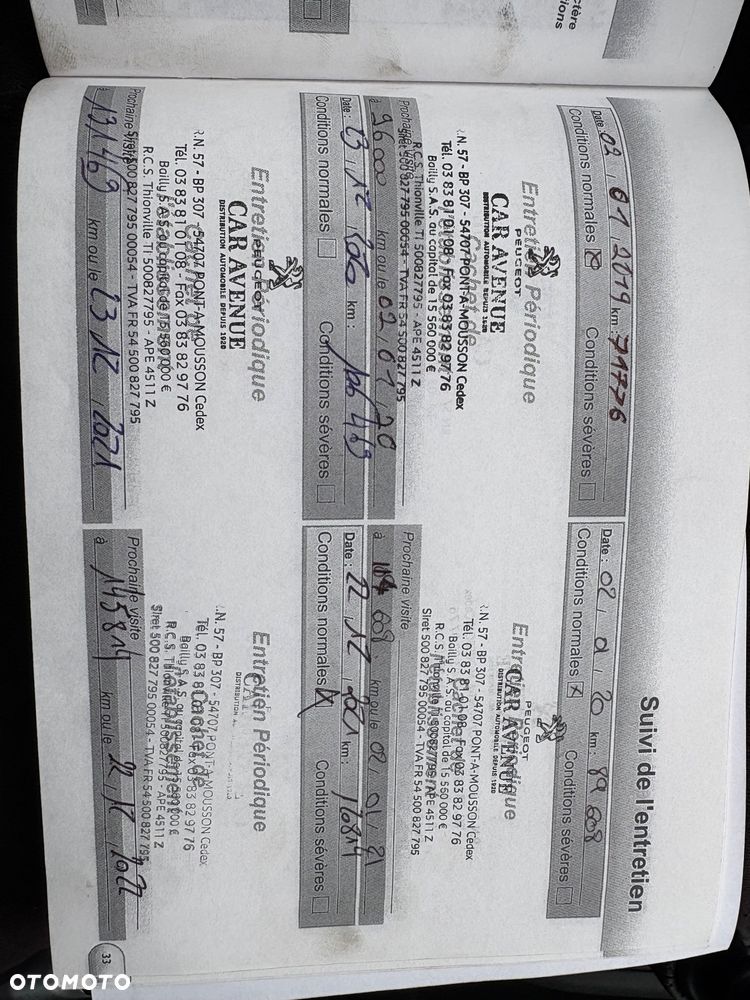 ctère
tions
Suivi de l'entretien
Date : 02 / 01 / 2019 km : 71776
Conditions normales ☒ Conditions sévères ☐
Entretien Périodique
PEUGEOT
CAR AVENUE
DISTRIBUTION AUTOMOBILE DEPUIS 1920
Cachet de
R.N. 57 - BP 307 - 54707 PONT-A-MOUSSON Cedex
Tél. 03 83 81 01 08 - Fax 03 83 82 97 76
Bailly S.A.S. au capital de 15 560 000 €
R.C.S. Thionville TI 500827795 - APE 4511 Z
Siret 500 827 795 00054 - TVA FR 54 500 827 795
Prochaine visite
à 96000 km ou le 02 / 01 / 20
Date : 02 / 01 / 20 km : 89 608
Conditions normales ☒ Conditions sévères ☐
Entretien Périodique
PEUGEOT
CAR AVENUE
DISTRIBUTION AUTOMOBILE DEPUIS 1920
Cachet de
R.N. 57 - BP 307 - 54707 PONT-A-MOUSSON Cedex
Tél. 03 83 81 01 08 - Fax 03 83 82 97 76
Bailly S.A.S. au capital de 15 560 000 €
R.C.S. Thionville TI 500827795 - APE 4511 Z
Siret 500 827 795 00054 - TVA FR 54 500 827 795
Prochaine visite
à 608 km ou le 02 / 01 / 21
Date : 23 / 12 / 2020 km : 106 469
Conditions normales ☐ Conditions sévères ☐
Entretien Périodique
PEUGEOT
CAR AVENUE
DISTRIBUTION AUTOMOBILE DEPUIS 1920
Cachet de
R.N. 57 - BP 307 - 54707 PONT-A-MOUSSON Cedex
Tél. 03 83 81 01 08 - Fax 03 83 82 97 76
Bailly S.A.S. au capital de 15 560 000 €
R.C.S. Thionville TI 500827795 - APE 4511 Z
Siret 500 827 795 00054 - TVA FR 54 500 827 795
Prochaine visite
à 131469 km ou le 23 / 12 / 2021
Date : 22 / 12 / 2021 km : 120814
Conditions normales ☒ Conditions sévères ☐
Entretien Périodique
Cachet de
l'établissement
R.N. 57 - BP 307 - 54707 PONT-A-MOUSSON Cedex
Tél. 03 83 81 01 08 - Fax 03 83 82 97 76
Bailly S.A.S. au capital de 15 560 000 €
R.C.S. Thionville TI 500827795 - APE 4511 Z
Siret 500 827 795 00054 - TVA FR 54 500 827 795
Prochaine visite
à 145814 km ou le 22 / 12 / 2022
33
OTOMOTO